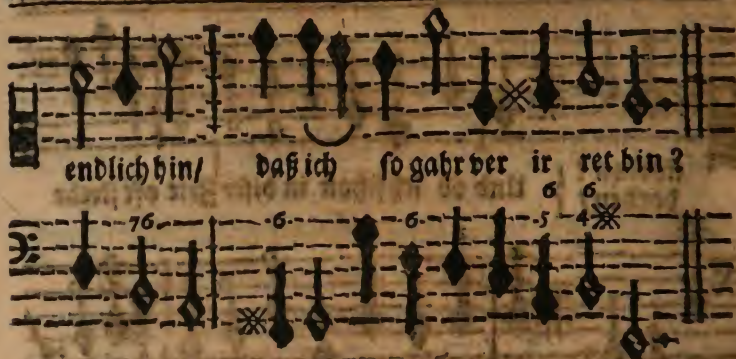 endlich hin/ daß ich so gahr ver ir ret bin?
6 6
76 6 6 5 4